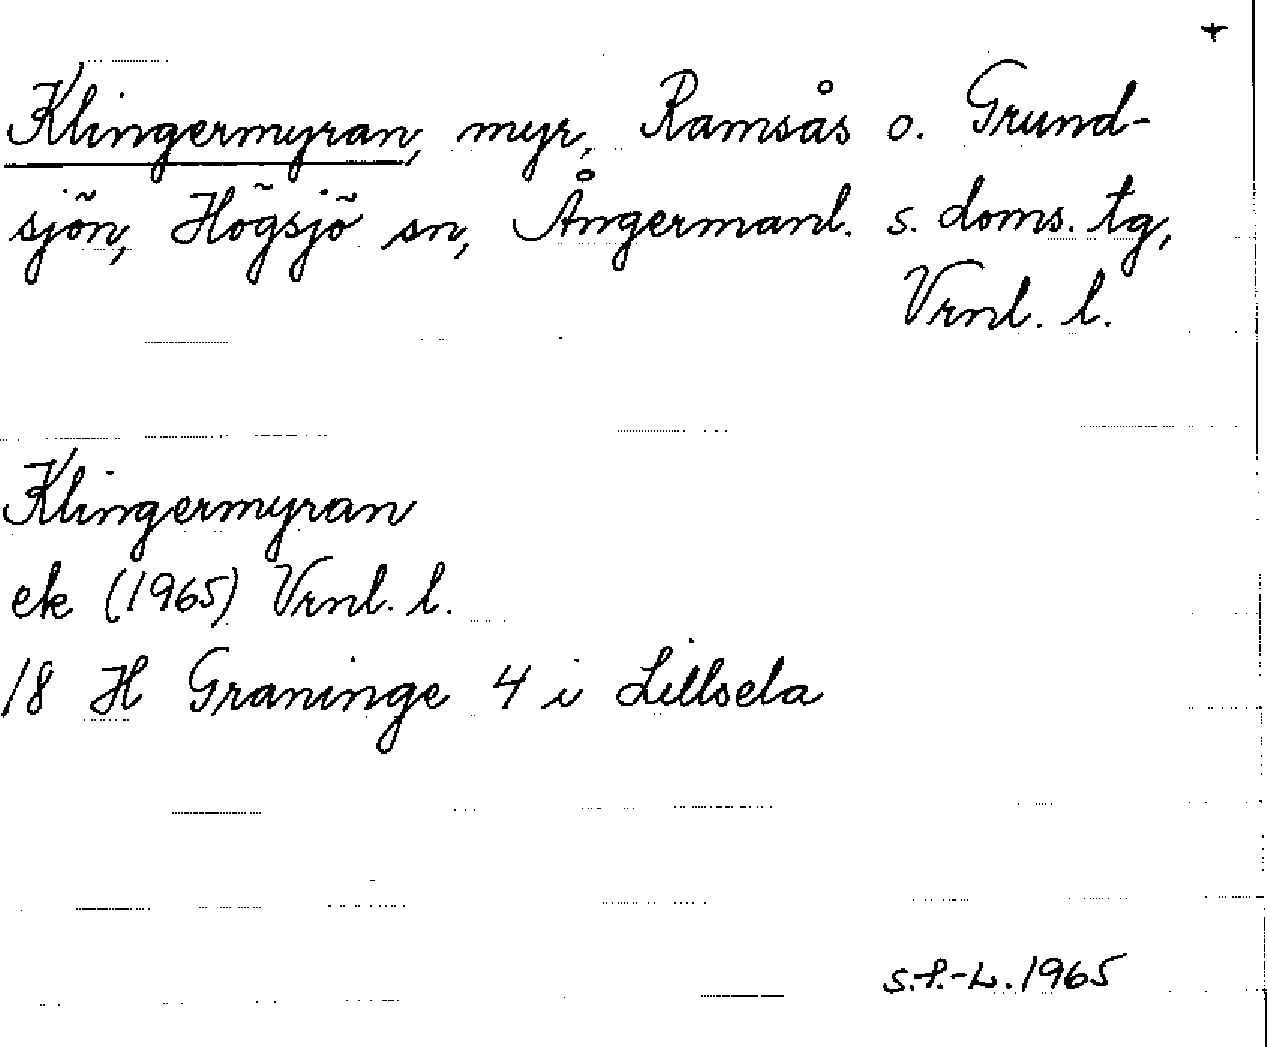 +
Klingermyran, myr, Ramsås o. Grund-
sjön, Högsjö sn, Ångermanl. s. doms. tg,
Vrnl. l.
Klingermyran
ek (1965) Vrnl. l.
18 H Graninge 4 i Lillsela
S.f.-L. 1965